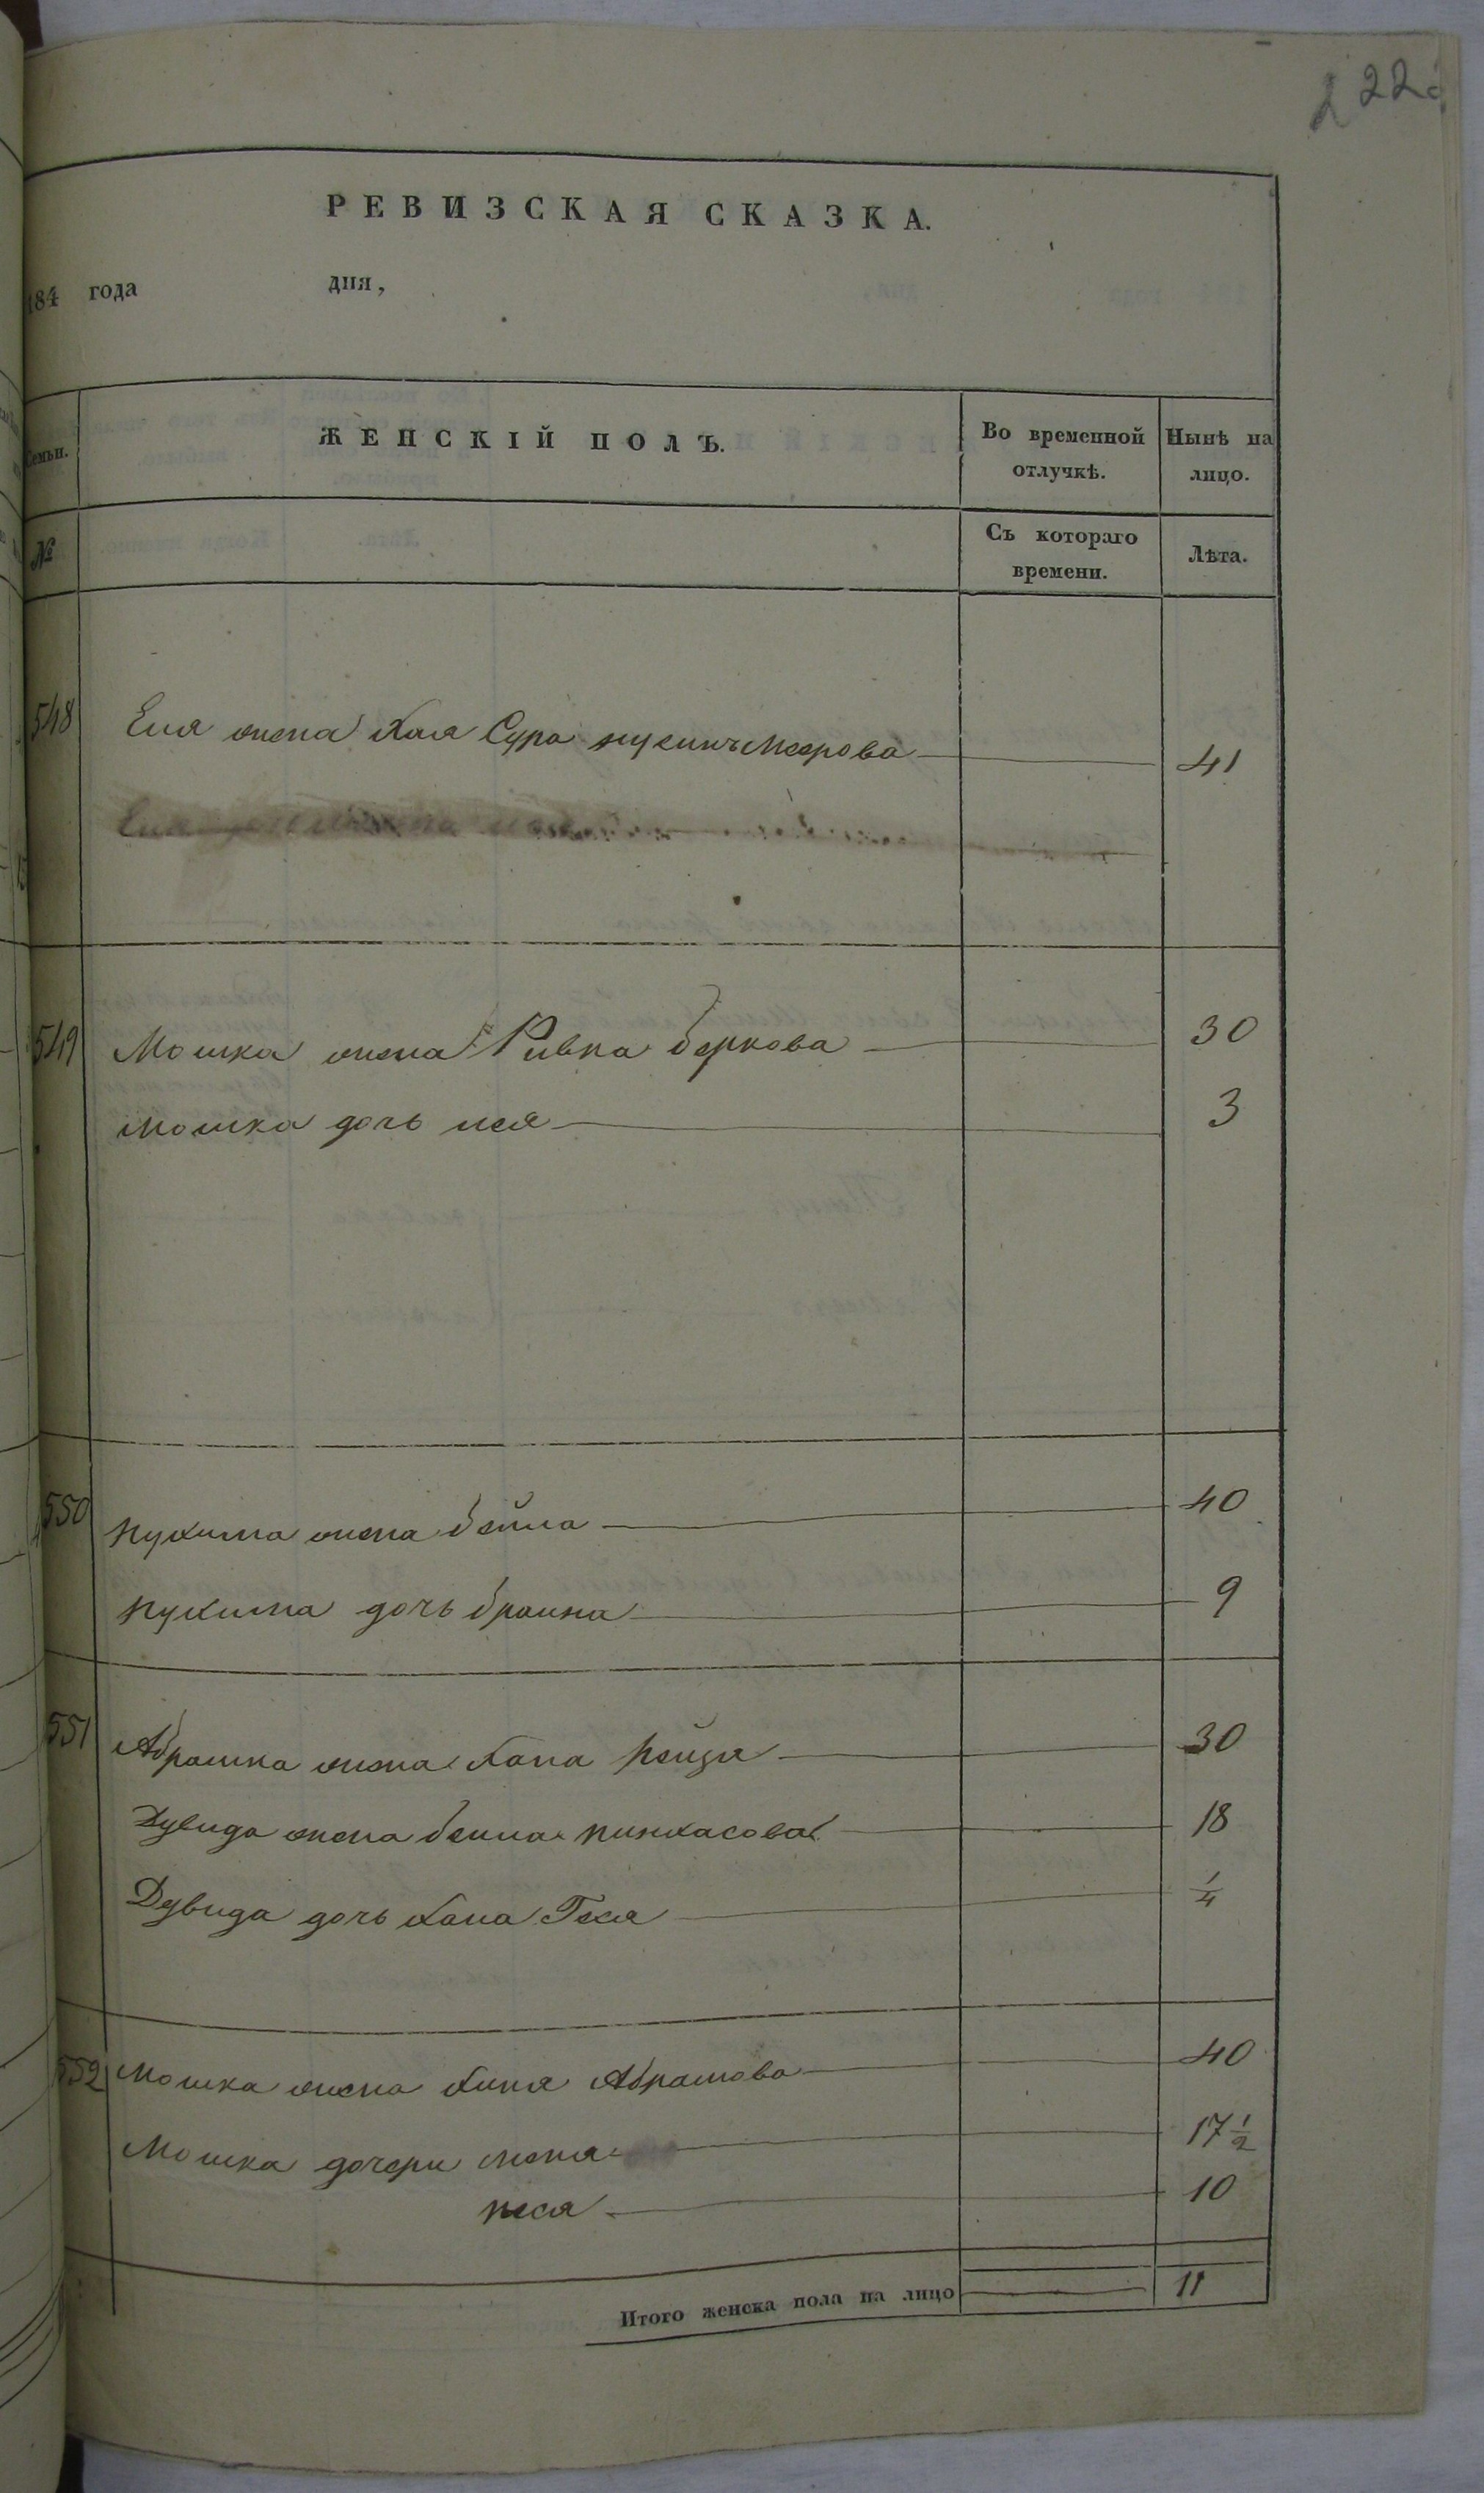 222
РЕВИЗСКАЯ СКАЗКА.
184 года дня,
Семьи. ЖЕНСКІЙ ПОЛЪ. Во временной отлучкѣ. Нынѣ на лицо.
№ Съ котораго времени. Лѣта.
548 Еля жена Хая Сура Меерова 41
549 Мошка жена Ривка Беркова 30
Мошка дочь лея 3
550 жена бейла 40
дочь браина 9
551 Абрашка жена Хана Рейзя 30
Дувида жена бейла пинхасова 18
Дувида дочь Хана Геся 1/4
552 Мошка жена Хиня Абрамова 40
Мошка дочери 17 1/2
песя 10
Итого женска пола на лицо 11